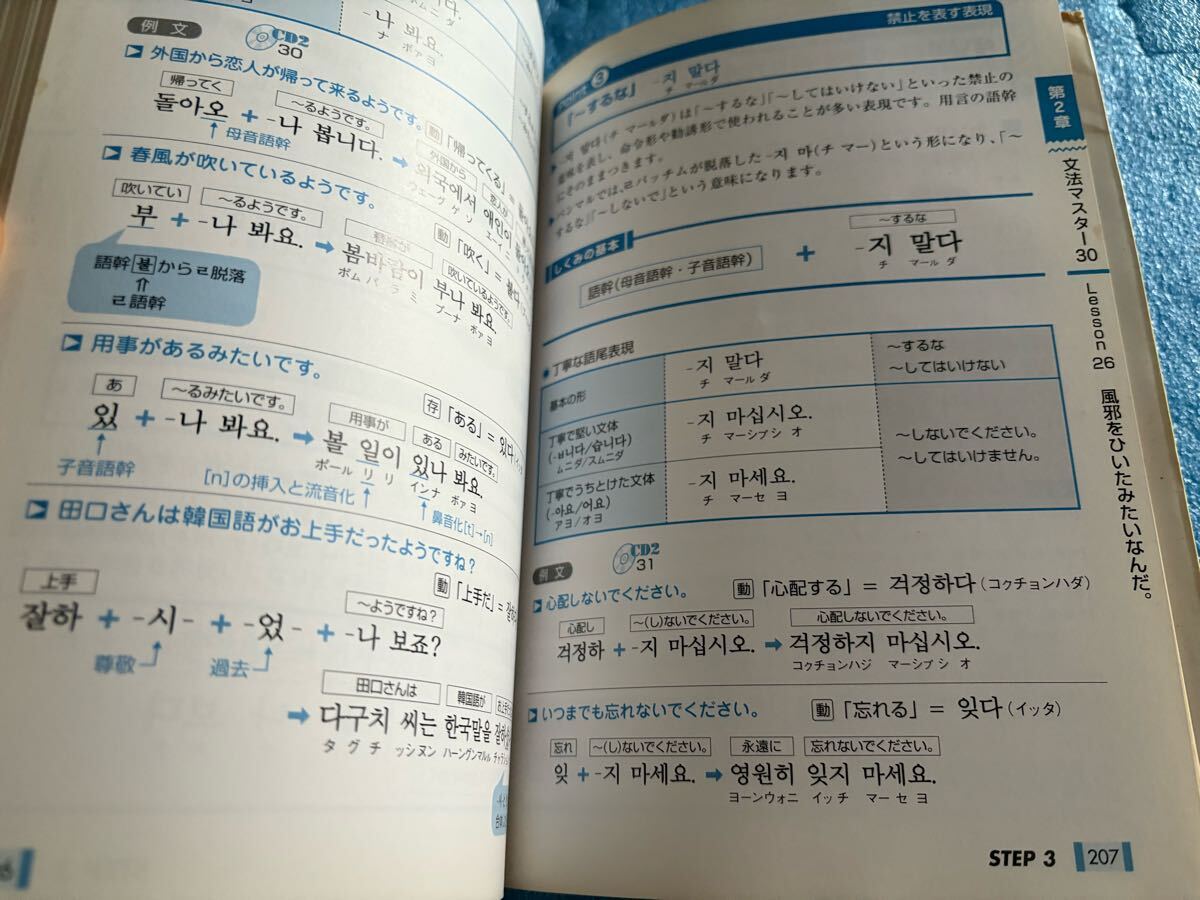 나 봐요.
ナ ボァヨ
例文
CD2
30
外国から恋人が帰って来るようです。
帰ってく
～るようです。
돌아오 + -나 봅니다.
動「帰ってくる」=
母音語幹
외국에서 애인이
ウェーグゲソ エーイニ
春風が吹いているようです。
吹いてい
～るようです。
부 + -나 봐요.
動「吹く」= 불다
春風が
吹いているようです。
➡ 봄바람이 부나 봐요.
ポムパラミ ブーナ ボァヨ
語幹 불 からㄹ脱落
⇑
ㄹ語幹
用事があるみたいです。
あ
～るみたいです。
存「ある」= 있다
用事が
ある
みたいです。
있 + -나 봐요. ➡ 볼 일이 있나 봐요.
ボールリリ インナ ボァヨ
子音語幹
[n]の挿入と流音化
鼻音化[t]→[n]
田口さんは韓国語がお上手だったようですね？
動「上手だ」=
上手
～ようですね？
잘하 + -시- + -었- + -나 보죠?
尊敬
過去
田口さんは
韓国語が
➡ 다구치 씨는 한국말을
タグチ ッシヌン ハーングンマルル
禁止を表す表現
point 3
「～するな」 -지 말다
チ マールダ
-지 말다(チ マールダ)は「～するな」「～してはいけない」といった禁止の
意味を表し、命令形や勧誘形で使われることが多い表現です。用言の語幹
にそのままつきます。
パンマルでは、ㄹパッチムが脱落した-지 마(チ マー)という形になり、「～
するな」「～しないで」という意味になります。
しくみの基本
～するな
語幹(母音語幹・子音語幹) + -지 말다
チ マールダ
丁寧な語尾表現
基本の形
-지 말다
チ マールダ
～するな
～してはいけない
丁寧で堅い文体
(-ㅂ니다/습니다)
ムニダ/スムニダ
-지 마십시오.
チ マーシプシオ
～しないでください。
～してはいけません。
丁寧でうちとけた文体
(-아요/어요)
アヨ/オヨ
-지 마세요.
チ マーセヨ
例文
CD2
31
心配しないでください。
動「心配する」= 걱정하다(コクチョンハダ)
心配し
～(し)ないでください。
心配しないでください。
걱정하 + -지 마십시오. ➡ 걱정하지 마십시오.
コクチョンハジ マーシプシオ
いつまでも忘れないでください。
動「忘れる」= 잊다(イッタ)
忘れ
～(し)ないでください。
永遠に
忘れないでください。
잊 + -지 마세요. ➡ 영원히 잊지 마세요.
ヨーンウォニ イッチ マーセヨ
STEP 3
207
第2章
文法マスター30
Lesson 26
風邪をひいたみたいなんだ。